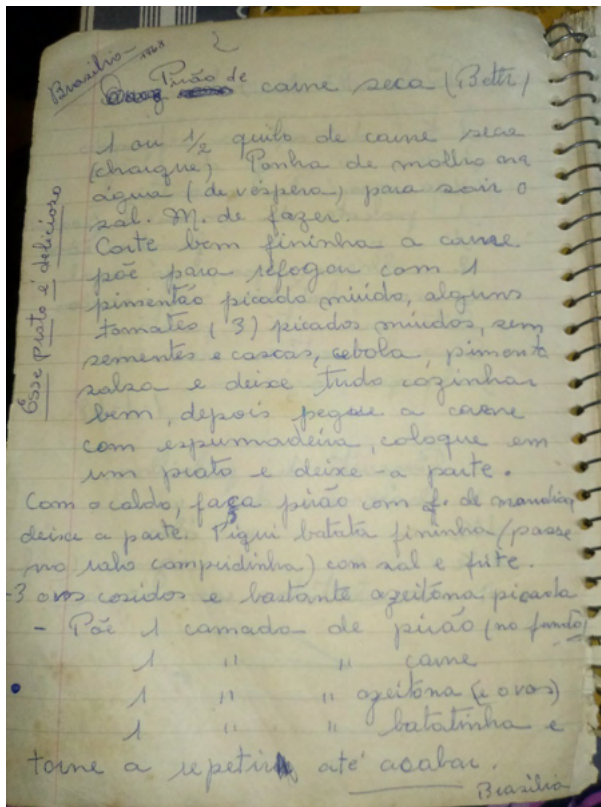 Brasília - 1968
2
Pirão de carne seca (Betti)
1 ou 1/2 quilo de carne seca
(charque) Ponha de molho na
água (de véspera) para sair o
sal. M. de fazer.
Corte bem fininha a carne
põe para refogar com 1
pimentão picado miúdo, alguns
tomates (3) picados miúdos, sem
sementes e cascas, cebola, pimenta
salsa e deixe tudo cozinhar
bem, depois pegue a carne
com espumadeira, coloque em
um prato e deixe-a parte.
Com o caldo, faça pirão com f. de mandioca
deixe a parte. Piqui batata fininha (passe
no ralo compridinha) com sal e frite.
-3 ovos cosidos e bastante azeitôna picada
- Põe 1 camada de pirão (no fundo)
1 " " carne
1 " " azeitôna (e ovos)
1 " " batatinha e
torne a repetir até acabar.
Brasília
Êsse prato é delicioso